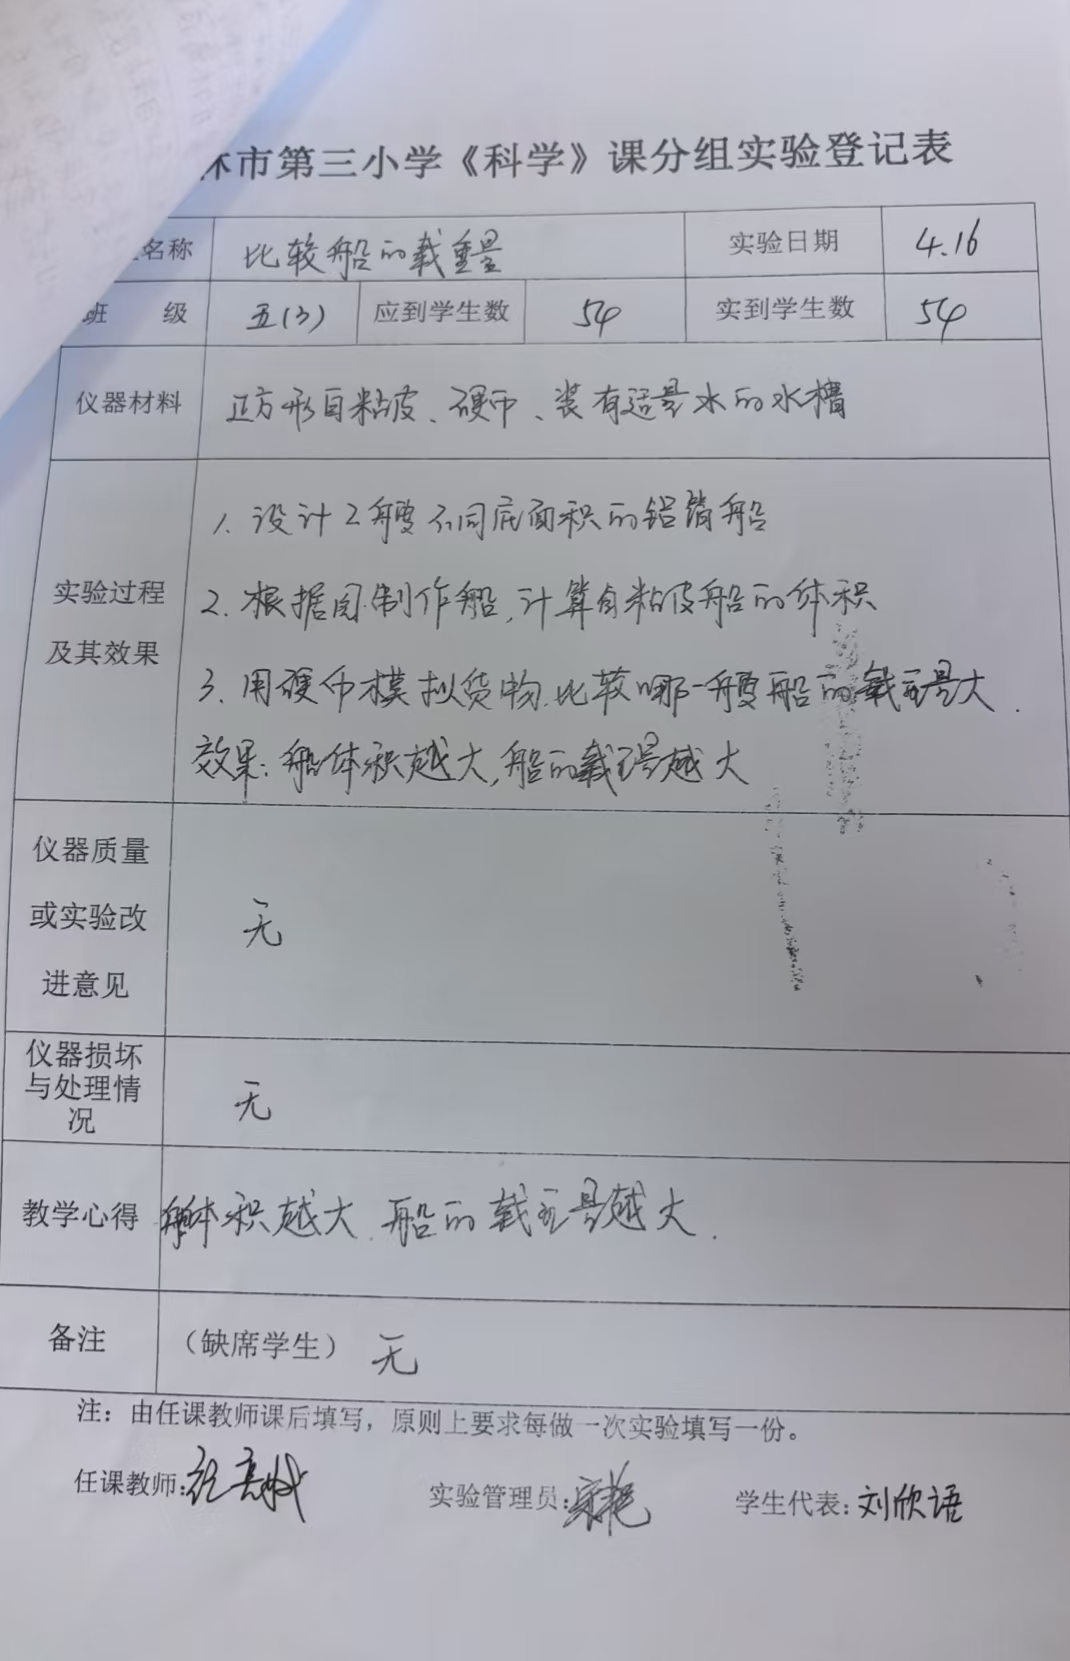 林市第三小学《科学》课分组实验登记表
名称 比较船的载重量 实验日期 4.16
班 级 五(3) 应到学生数 54 实到学生数 54
仪器材料 正方形自粘皮、硬币、装有适量水的水槽
实验过程
及其效果
1. 设计2艘不同底面积的铝箔船
2. 根据图制作船,计算自粘皮船的体积
3. 用硬币模拟货物,比较哪一艘船的载重量大.
效果:船体积越大,船的载重量越大
仪器质量
或实验改
进意见
无
仪器损坏
与处理情
况
无
教学心得 船体积越大,船的载重量越大.
备注 (缺席学生) 无
注:由任课教师课后填写,原则上要求每做一次实验填写一份。
任课教师: 实验管理员: 学生代表:刘欣语